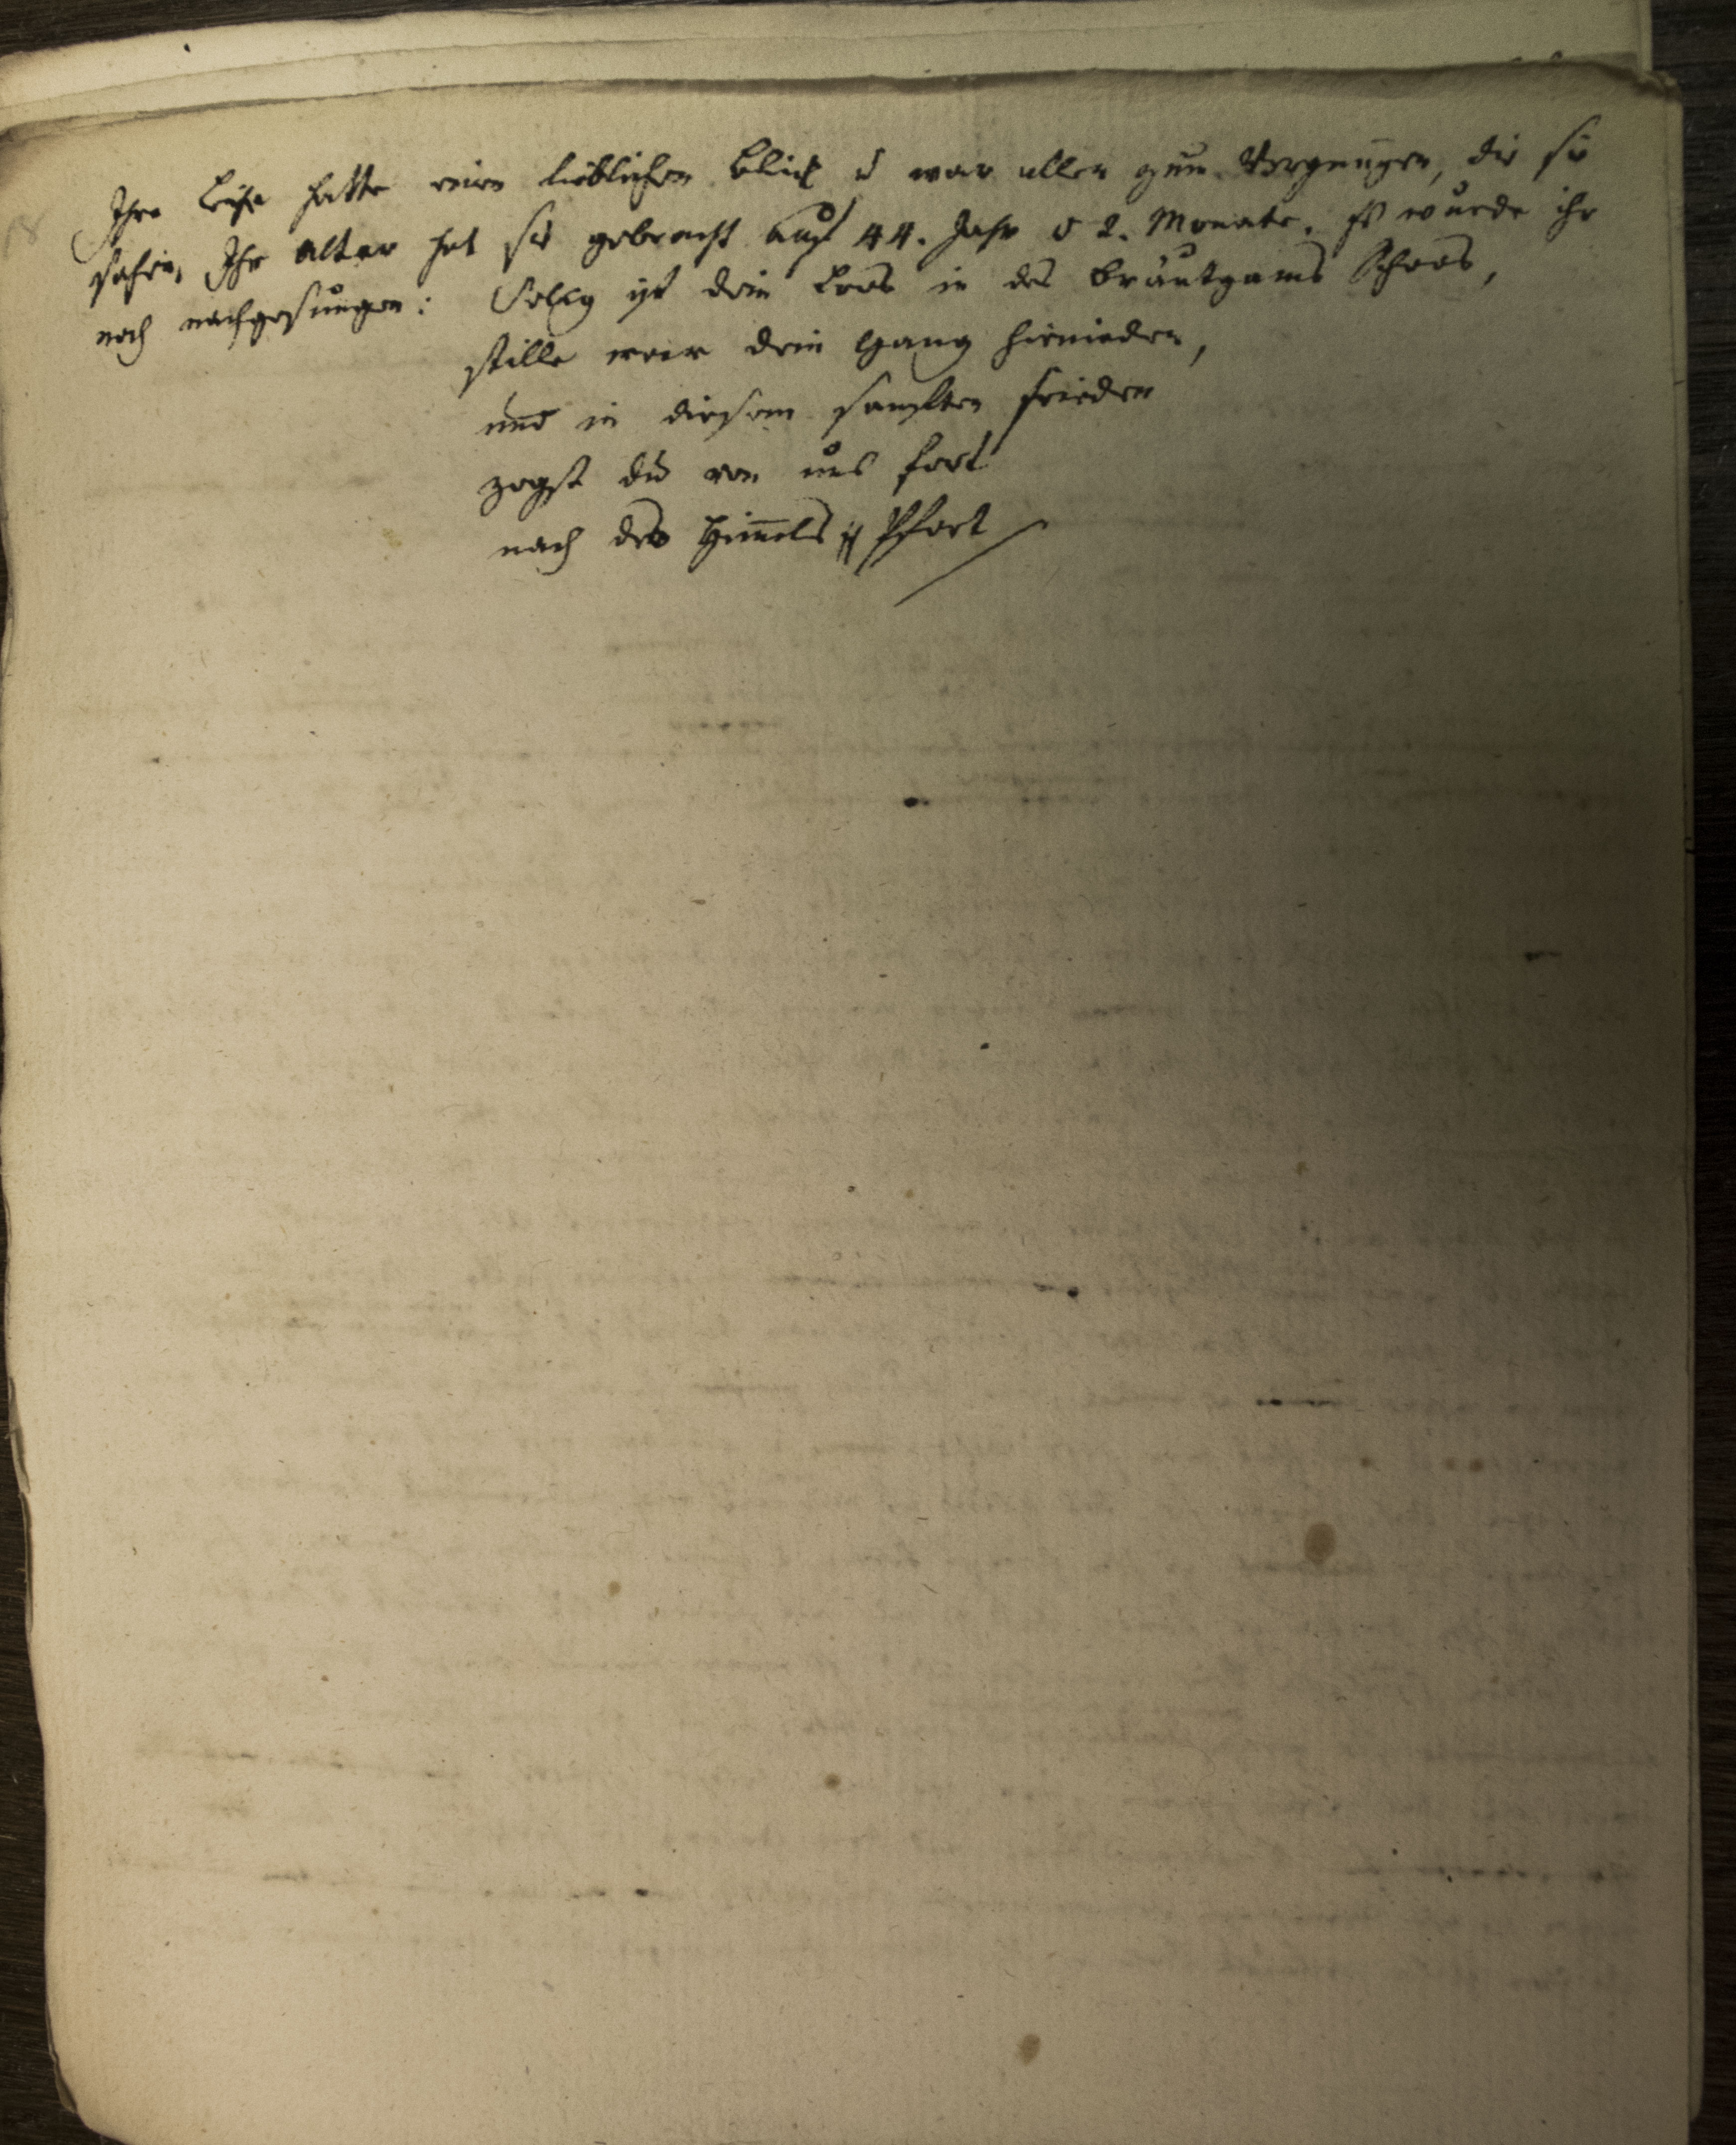 Ihre Leiche hatte einen lieblichen Blick u war allen zum Vergnügen, die sie
sahen, Ihr Alter hat sie gebracht auf 44. Jahr u 2. Monate. Es wurde ihr
noch nachgesungen: Selig ist dein Loos in des Bräutgams Schoos,
stille war dein Gang hienieden,
und in diesem sanften Frieden
zogst du von uns fort
nach des Himels Pfort